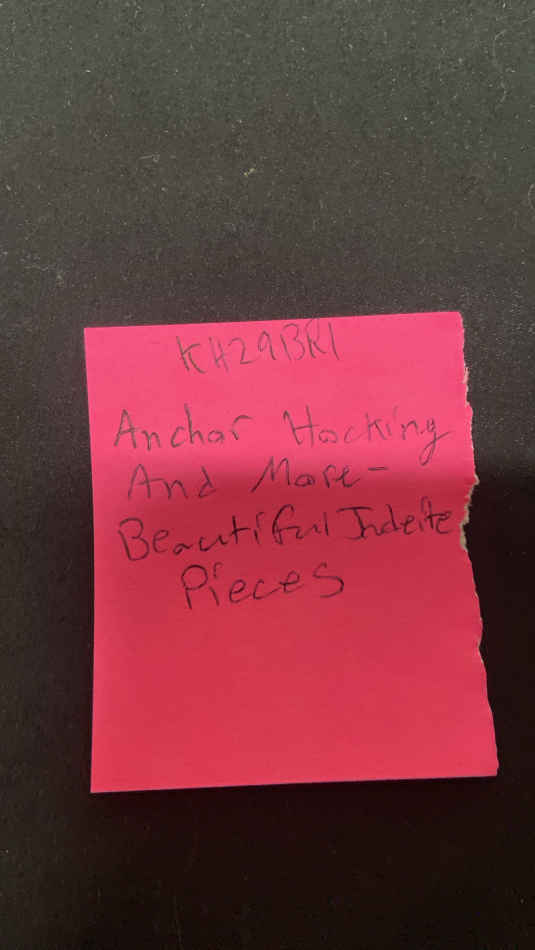 KH29BRI
Anchor Hocking
And More-
Beautiful Jadeite
Pieces